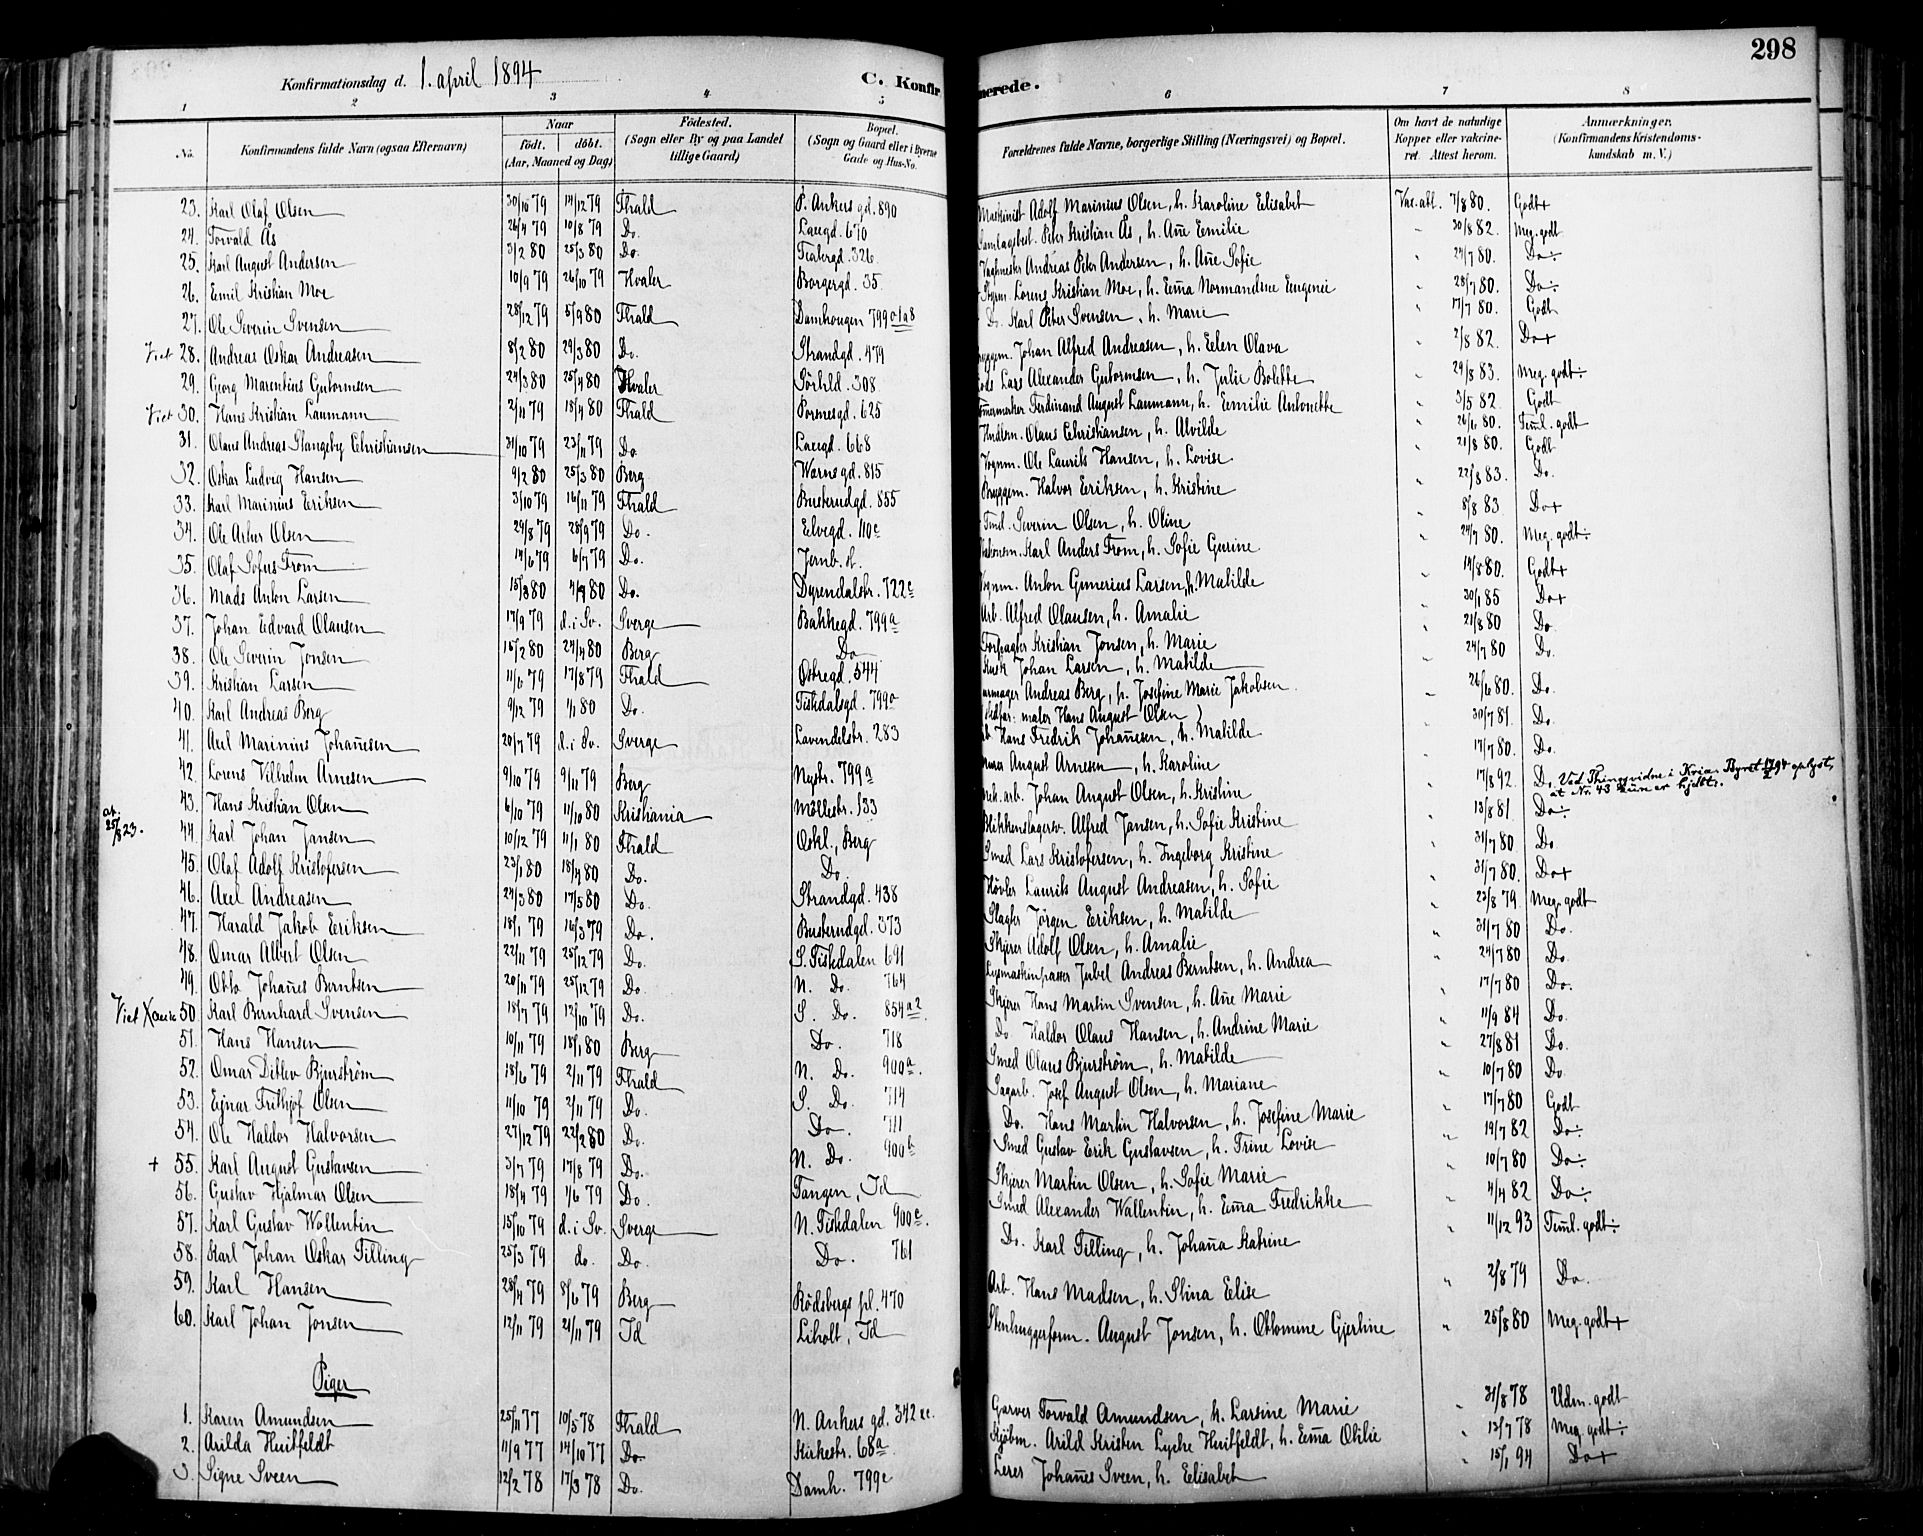 298
Konfirmationsdag d. 1. april 1894
C. Konfirmerede.
1 2 3 4 5 6 7 8
No. Konfirmandens fulde Navn (ogsaa Efternavn) Naar født. døbt. (Aar, Maaned og Dag) Födested. (Sogn eller By og paa Landet tillige Gaard) Bopæl. (Sogn og Gaard eller i Byerne Gade og Hus-No. Forældrenes fulde Navne, borgerlige Stilling (Næringsvei) og Bopæl. Om havt de naturlige Kopper eller vakcineret. Attest herom. Anmærkninger. (Konfirmandens Kristendomskundskab m. V.)
23. Karl Olaf Olsen 30/10 79 14/12 79 Fhald P. Ankers gd. 890 Maskinist Adolf Marinius Olsen, h. Karoline Elisabet Vac. att. 7/8 80. Godt+
24. Torvald Ås 26/4 79 10/8 79 Do. Laugd. 670 Peter Kristian Ås, h. Añe Emilie " 30/8 82. Meg. godt
25. Karl August Andersen 31/2 80 25/3 80 Do. Teatergd. 326 Vagtmester Andreas Peter Andersen, h. Añe Sofie " 24/7 80. Do÷
26. Emil Kristian Moe 10/9 79 26/10 79 Hvaler Borgergd. 35 Styrm. Lorens Kristian Moe, h. Em̃a Normandine Eugenie " 28/7 80. Do÷
27. Ole Severin Svensen 28/12 79 5/9 80 Fhald Damhougen 799 Do. Karl Peter Svensen, h. Marie " 17/7 80. Godt
Viet 28. Andreas Oskar Andreasen 8/2 80 29/3 80 Do. Strandgd. 479 Johan Alfred Andreasen, h. Elen Olava " 2/8 82. Do+
29. Georg Marentius Gutormsen 24/3 80 25/4 80 Hvaler Sörhld. 308 Lods Lars Alexander Gutormsen, h. Julie Bolette " 29/8 83. Meg. godt÷
Viet 30. Hans Kristian Laumann 2/11 79 18/4 80 Fhald Tormesgd. 625 Ferdinand August Laumann, h. Emilie Antonette " 3/5 82. Godt
31. Olaus Andreas Stangeby Christiansen 31/10 79 23/11 79 Do. Laugd. 668 Hndlsm. Olaus Christiansen, h. Alvilde " 26/6 80. Tem̃l. godt
32. Oskar Ludvig Hansen 9/2 80 25/3 80 Berg Wærns gd. 815 Vognm. Ole Laurits Hansen, h. Lovise " 21/8 80. Godt
33. Karl Marinius Eriksen 3/10 79 16/11 79 Fhald Busterudgd. 855 Bryggem. Halvor Eriksen, h. Kristine " 22/8 83. Do.
34. Ole Arker Olsen 29/8 79 28/9 79 Do. Elvegd. 110c Severin Olsen, h. Oline " 8/8 83 Do+
35. Olaf Sofus From 14/6 79 6/7 79 Do. Jernb. st. Karl Anders From, h. Sofie Gurine " 24/7 80. Meg. godt÷
36. Mads Anton Larsen 15/3 80 Do. Dyrendalstr. 722c Vognm. Anton Gunerius Larsen, h. Matilde " 14/8 80. Godt+
37. Johan Edvard Olausen 17/9 79 d. i Sv. Sverge Bakkegd. 799a Arb. Alfred Olausen, h. Amalie " 30/1 85 Do+
38. Ole Severin Jonsen 15/2 80 24/4 80 Berg Do Forpagter Kristian Jonsen, h. Marie " 21/8 80 Do.
39. Kristian Larsen 11/6 79 17/8 79 Fhald Østregd. 544 Kusk Johan Larsen, h. Matilde " 24/7 80 Do.
40. Karl Andreas Berg 9/12 79 1/1 80 Do. Tiskdalsgd. 799a Andreas Berg, h. Josefine Marie Jakobsen. " 26/6 80. Do.
(Stedfar: maler Hans August Olsen)
41. Axel Marinius Johañesen 20/7 79 d. i Sv. Sverge Lavendelstr. 283 Arb. Hans Fredrik Johañesen, h. Matilde " 30/7 81. Do.
42. Lorens Vilhelm Arnesen 9/10 79 9/11 79 Berg Nystr. 799a August Arnesen, h. Karoline " 17/7 80. Do.
43. Hans Kristian Olsen 4/10 79 11/10 80 Kristiania Möllestr. 133 Johan August Olsen, h. Kristine " 17/8 92. Do. Ved Thingsvidne i Kria. Byret oplyst, at Nr. 43
at. 25/8 23. 44. Karl Johan Jansen 10/12 79 11/1 80 Fhald Oskl., Berg Blikkenslagersv. Alfred Jansen, h. Sofie Kristine " 13/8 81 Do÷
45. Olaf Adolf Kristofersen 23/1 80 18/4 80 Do. Do. Smed Lars Kristofersen, h. Ingeborg Kristine " 31/7 80 Do.
46. Axel Andreasen 24/3 80 17/5 80 Do. Strandgd. 438 Høvler Laurits August Andreasen, h. Sofie " 31/7 80. Do+
47. Harald Jakob Eriksen 18/1 79 16/3 79 Do. Busterudgd. 373 Slagter Jörgen Eriksen, h. Matilde " 23/8 79 Meg. godt
48. Omar Albert Olsen 22/11 79 25/12 79 Do. S. Tiskdalen 691 Skjærer Adolf Olsen, h. Amalie " 31/7 80 Do.
49. Otto Johañes Berntsen 20/11 79 25/12 79 Do. N. Do. 764 Lysmaskinpasser Jubel Andreas Berntsen, h. Andrea " 24/7 80 Do.
Viet 50. Karl Bernhard Svensen 18/7 79 12/10 79 Do. S. Do. 854a2. Skjærer Hans Martin Svensen, h. Añe Marie " 17/7 80 Do.
51. Hans Hansen 10/11 79 18/1 80 Berg Do. 718 Do. Haldor Olaus Hansen, h. Andrine Marie " 11/9 84 Do.
52. Omar Ditlev Bjurström 18/6 79 2/11 79 Fhald N. Do. 900a. Smed Olaus Bjurström, h. Matilde " 27/8 81 Do.
53. Ejnar Frithjof Olsen 11/10 79 2/11 79 Do. S. Do. 714 Sagarb. Josef August Olsen, h. Mariane " 10/7 80 Do.
54. Ole Haldor Halvorsen 27/12 79 22/2 80 Do. Do. 711 Do. Hans Martin Halvorsen, h. Josefine Marie " 17/7 80 Godt
+ 55. Karl August Gustavsen 3/7 79 17/8 79 Do. N. Do. 900b Smed Gustav Erik Gustavsen, h. Trine Lovise " 19/7 82 Do÷
56. Gustav Hjalmar Olsen 18/4 79 1/6 79 Do. Tangen, Id Skjærer Martin Olsen, h. Sofie Marie " 10/7 80 Do÷
57. Karl Gustav Wallentin 15/10 79 d. i Sv. Sverge N. Tiskdalen 900c. Smed Alexander Wallentin, h. Em̃a Fredrikke " 4/4 82 Do÷
58. Karl Johan Oskar Tilling 25/3 79 do. Do. Do. 761 Do. Karl Tilling, h. Johaña Katrine " 11/12 93 Tem̃l. godt÷
59. Karl Hansen 28/4 79 8/6 79 Berg Rödsbergs pl. 470 Arb. Hans Madsen, h. Stina Elise " 2/8 79 Do.
60. Karl Johan Jonsen 12/11 79 21/11 79 Id Liholt, Id Stenhuggerform. August Jonsen, h. Ottomine Gjertine " 25/8 80 Meg. godt+
Piger
1. Karen Amundsen 25/11 77 10/5 78 Fhald N. Ankers gd. 342 Garver Torvald Amundsen, h. Larsine Marie " 31/8 78 Udm. godt
2. Arilda Huitfeldt 11/9 77 14/10 77 Do. Kirkestr. 68a Kjøbm. Arild Kristen Lycke Huitfeldt, h. Em̃a Otilie " 13/7 78 Meg. godt÷
3. Signe Sveen 12/2 78 17/3 78 Do. Damh. 799c Lærer Johañes Sveen, h. Elisabet " 15/1 94 Do+